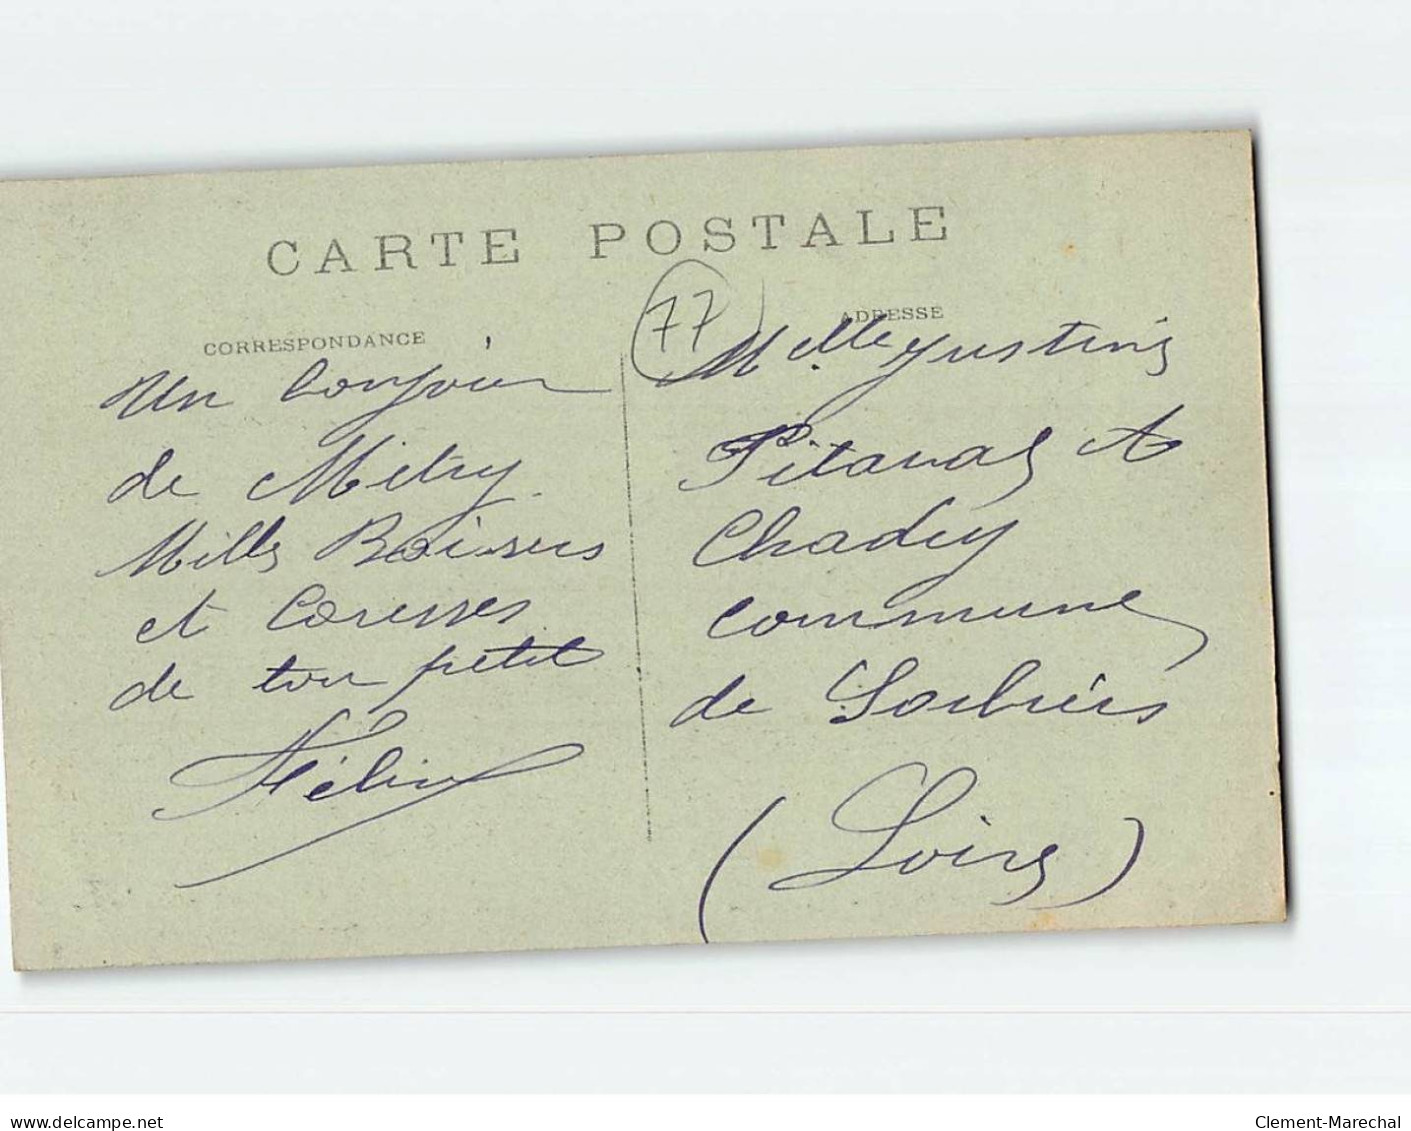 CARTE POSTALE
CORRESPONDANCE
Un bonjour
de Mitry
Mills Baisers
et Caresses
de ton petit
Félix
77
ADRESSE
Melle justins
Pitaval A
Chadey
commune
de Sorbiers
(Loire)
www.delcampe.net
Clement-Marechal